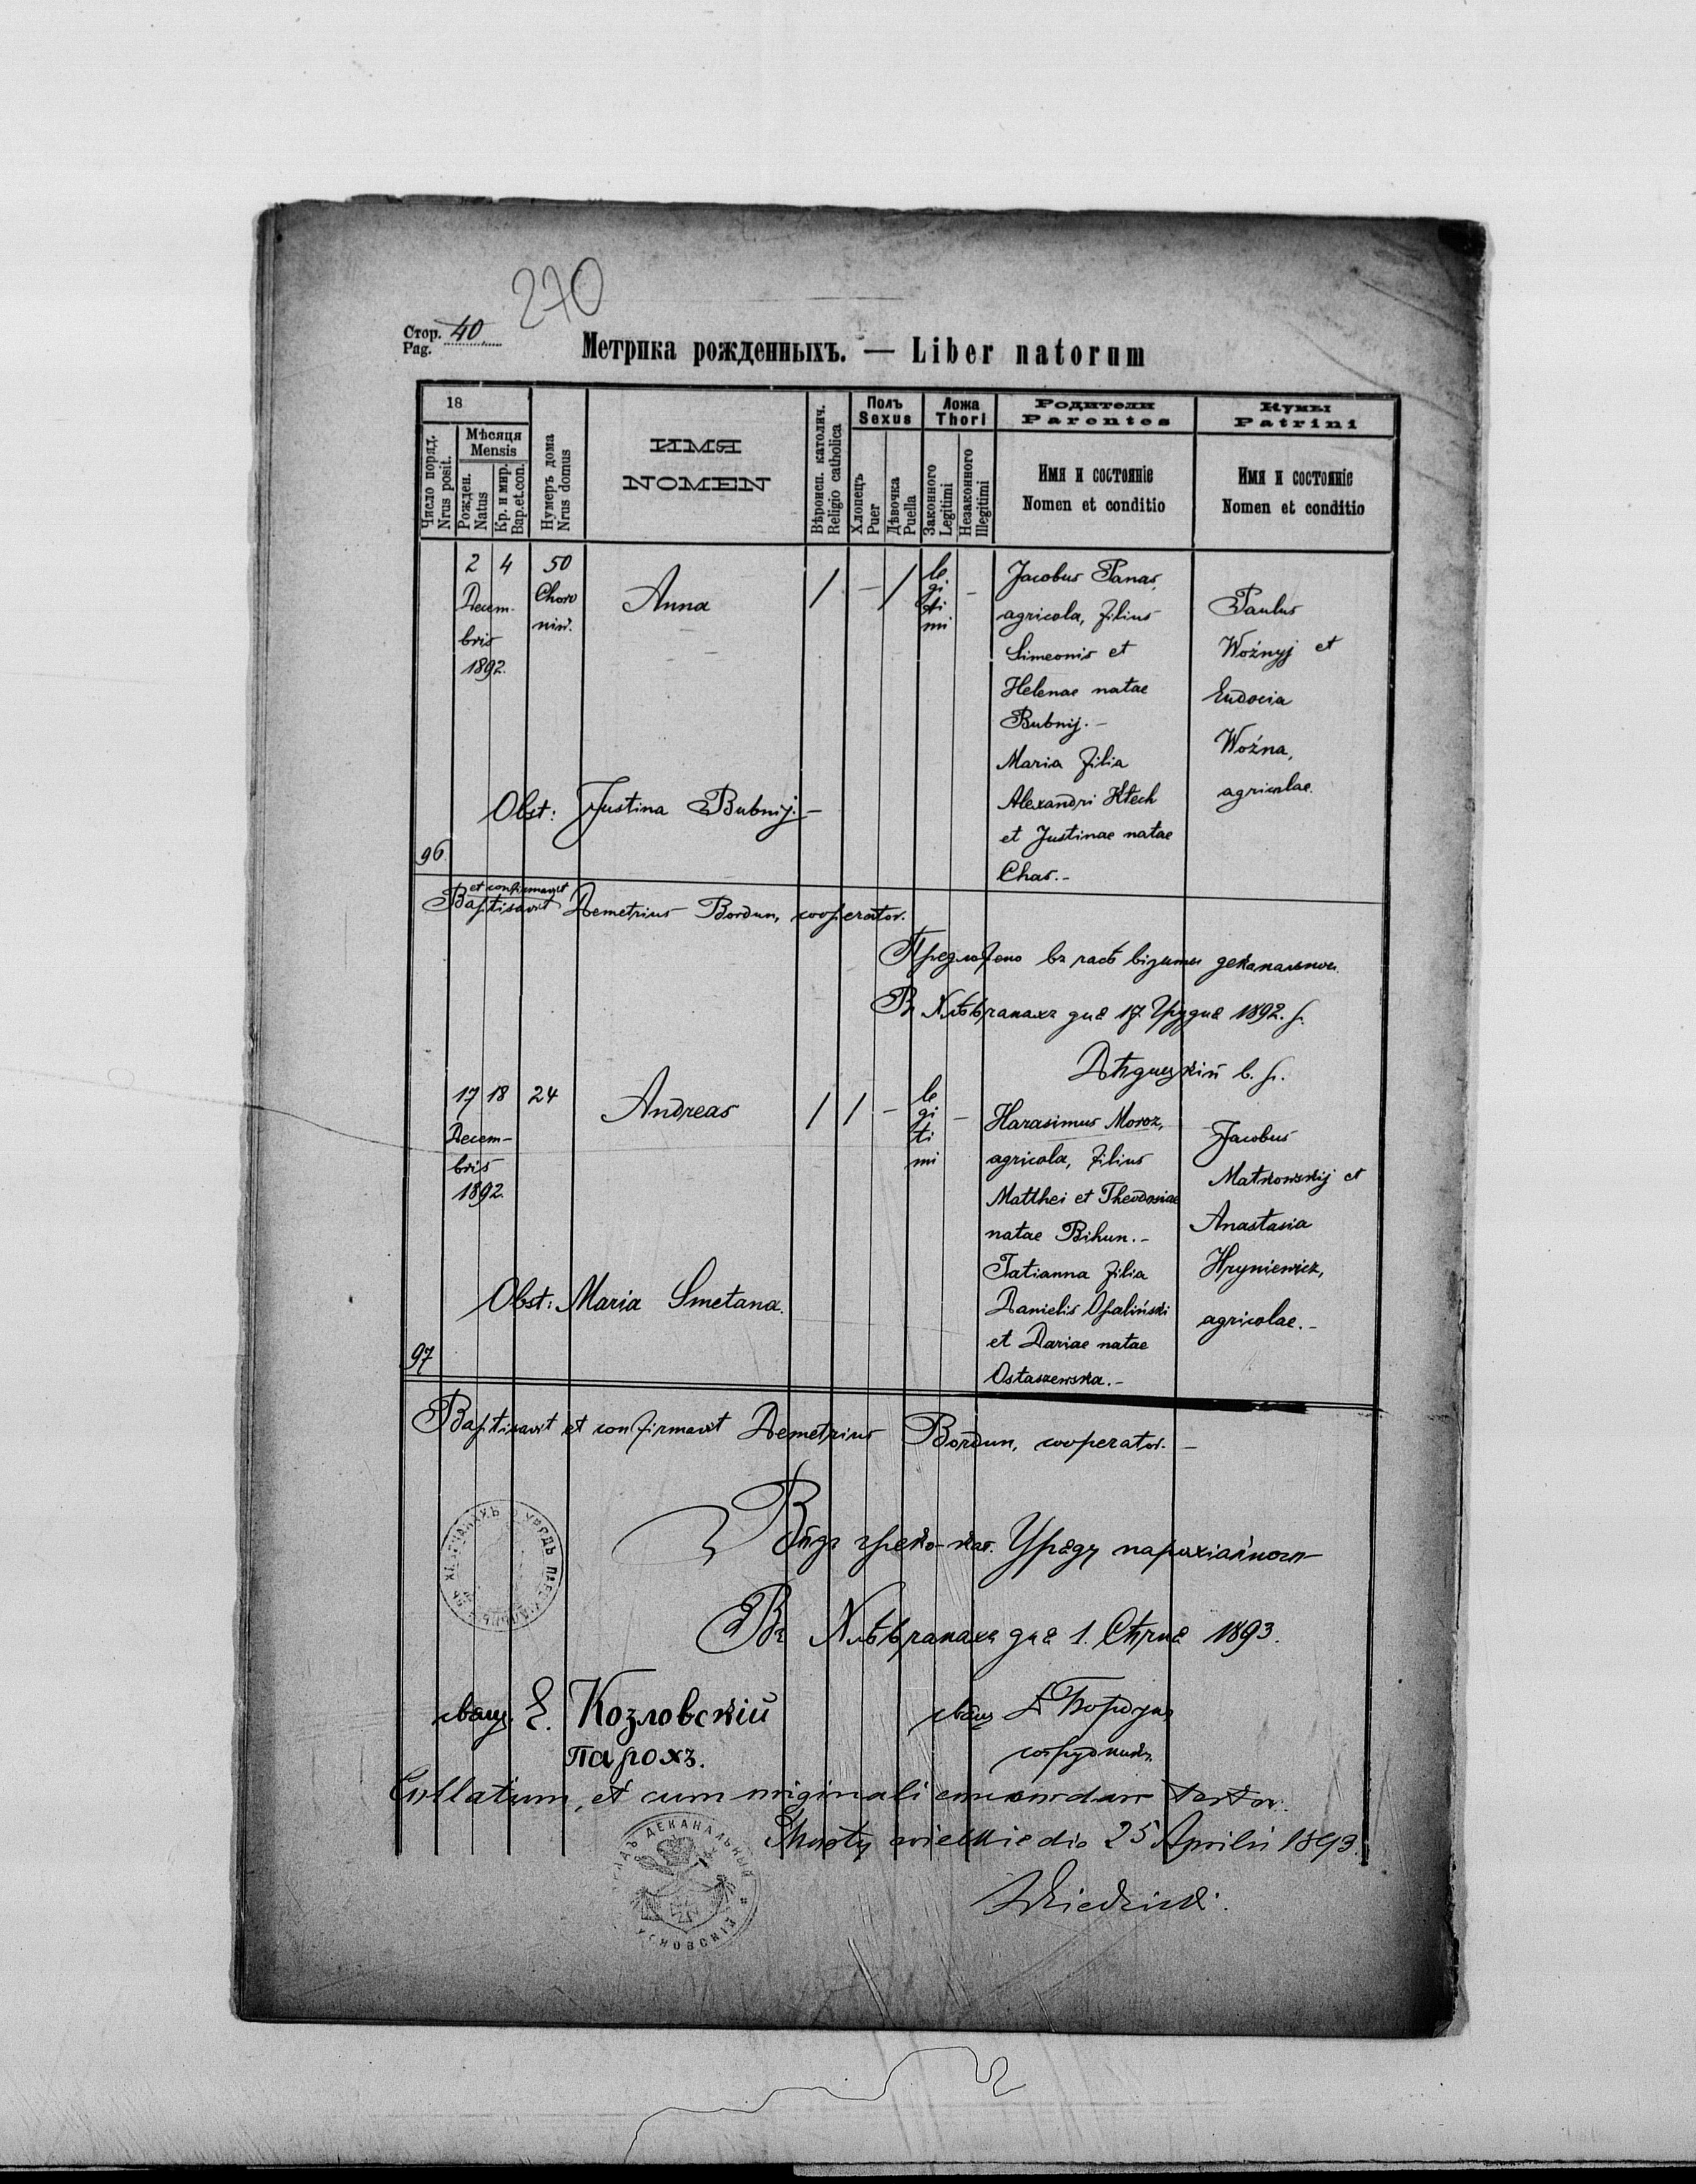 270
Стор. 40
Pag.
Метрика рожденныхъ. — Liber natorum
18
Число поряд.
Nrus posit.
Мѣсяця
Mensis
Рожден.
Natus
Кр. и мир.
Bap.et.con.
Нумеръ дома
Nrus domus
ИМЯ
NOMEN
Вѣроисп. католич.
Religio catholica
Полъ
Sexus
Хлопецъ
Puer
Дѣвочка
Puella
Ложа
Thori
Законного
Legitimi
Незаконного
Illegitimi
Родители
Parentes
Имя и состояніе
Nomen et conditio
Кумы
Patrini
Имя и состояніе
Nomen et conditio
2 4 50
Decem-
bris
1892.
Choro
niw.
Anna
/ - / -
le
gi
ti
mi
Jacobus Panas,
agricola, filius
Simeonis et
Helenae natae
Bubnij.-
Maria filia
Alexandri Klech
et Justinae natae
Chas.-
Paulus
Woźnyj et
Eudocia
Woźna,
agricolae.
Obst: Justina Bubnij.-
96
et confirmavit
Baptisavit Demetrius Bordun, cooperator.
Предложено въ часѣ візиты деканальнои
Въ Хлѣвчанахъ дня 17 Грудня 1892. р.
17 18 24
Decem-
bris
1892.
Andreas
/ / - -
le
gi
ti
mi
Harasimus Moroz,
agricola, filius
Matthei et Theodosiae
natae Bihun.-
Tatianna filia
Danielis Opaliński
et Dariae natae
Ostaszewska.-
Jacobus
Matkowskij et
Anastasia
Hryniewicz,
agricolae.-
Obst: Maria Smetana.
97
Baptisavit et confirmavit Demetrius Bordun, cooperator.-
Відъ греко-кат. Уряду парохіяльного
Въ Хлѣвчанахъ дня 1. Сѣчня 1893.
свящ. Е. Козловскій
парохъ.
свящ Д Бордунъ
сотрудникъ
Collatum, et cum originali concordare testor.
Mosty wielkie die 25 Aprilis 1893.
ДЕКАНАЛЬНЫЙ